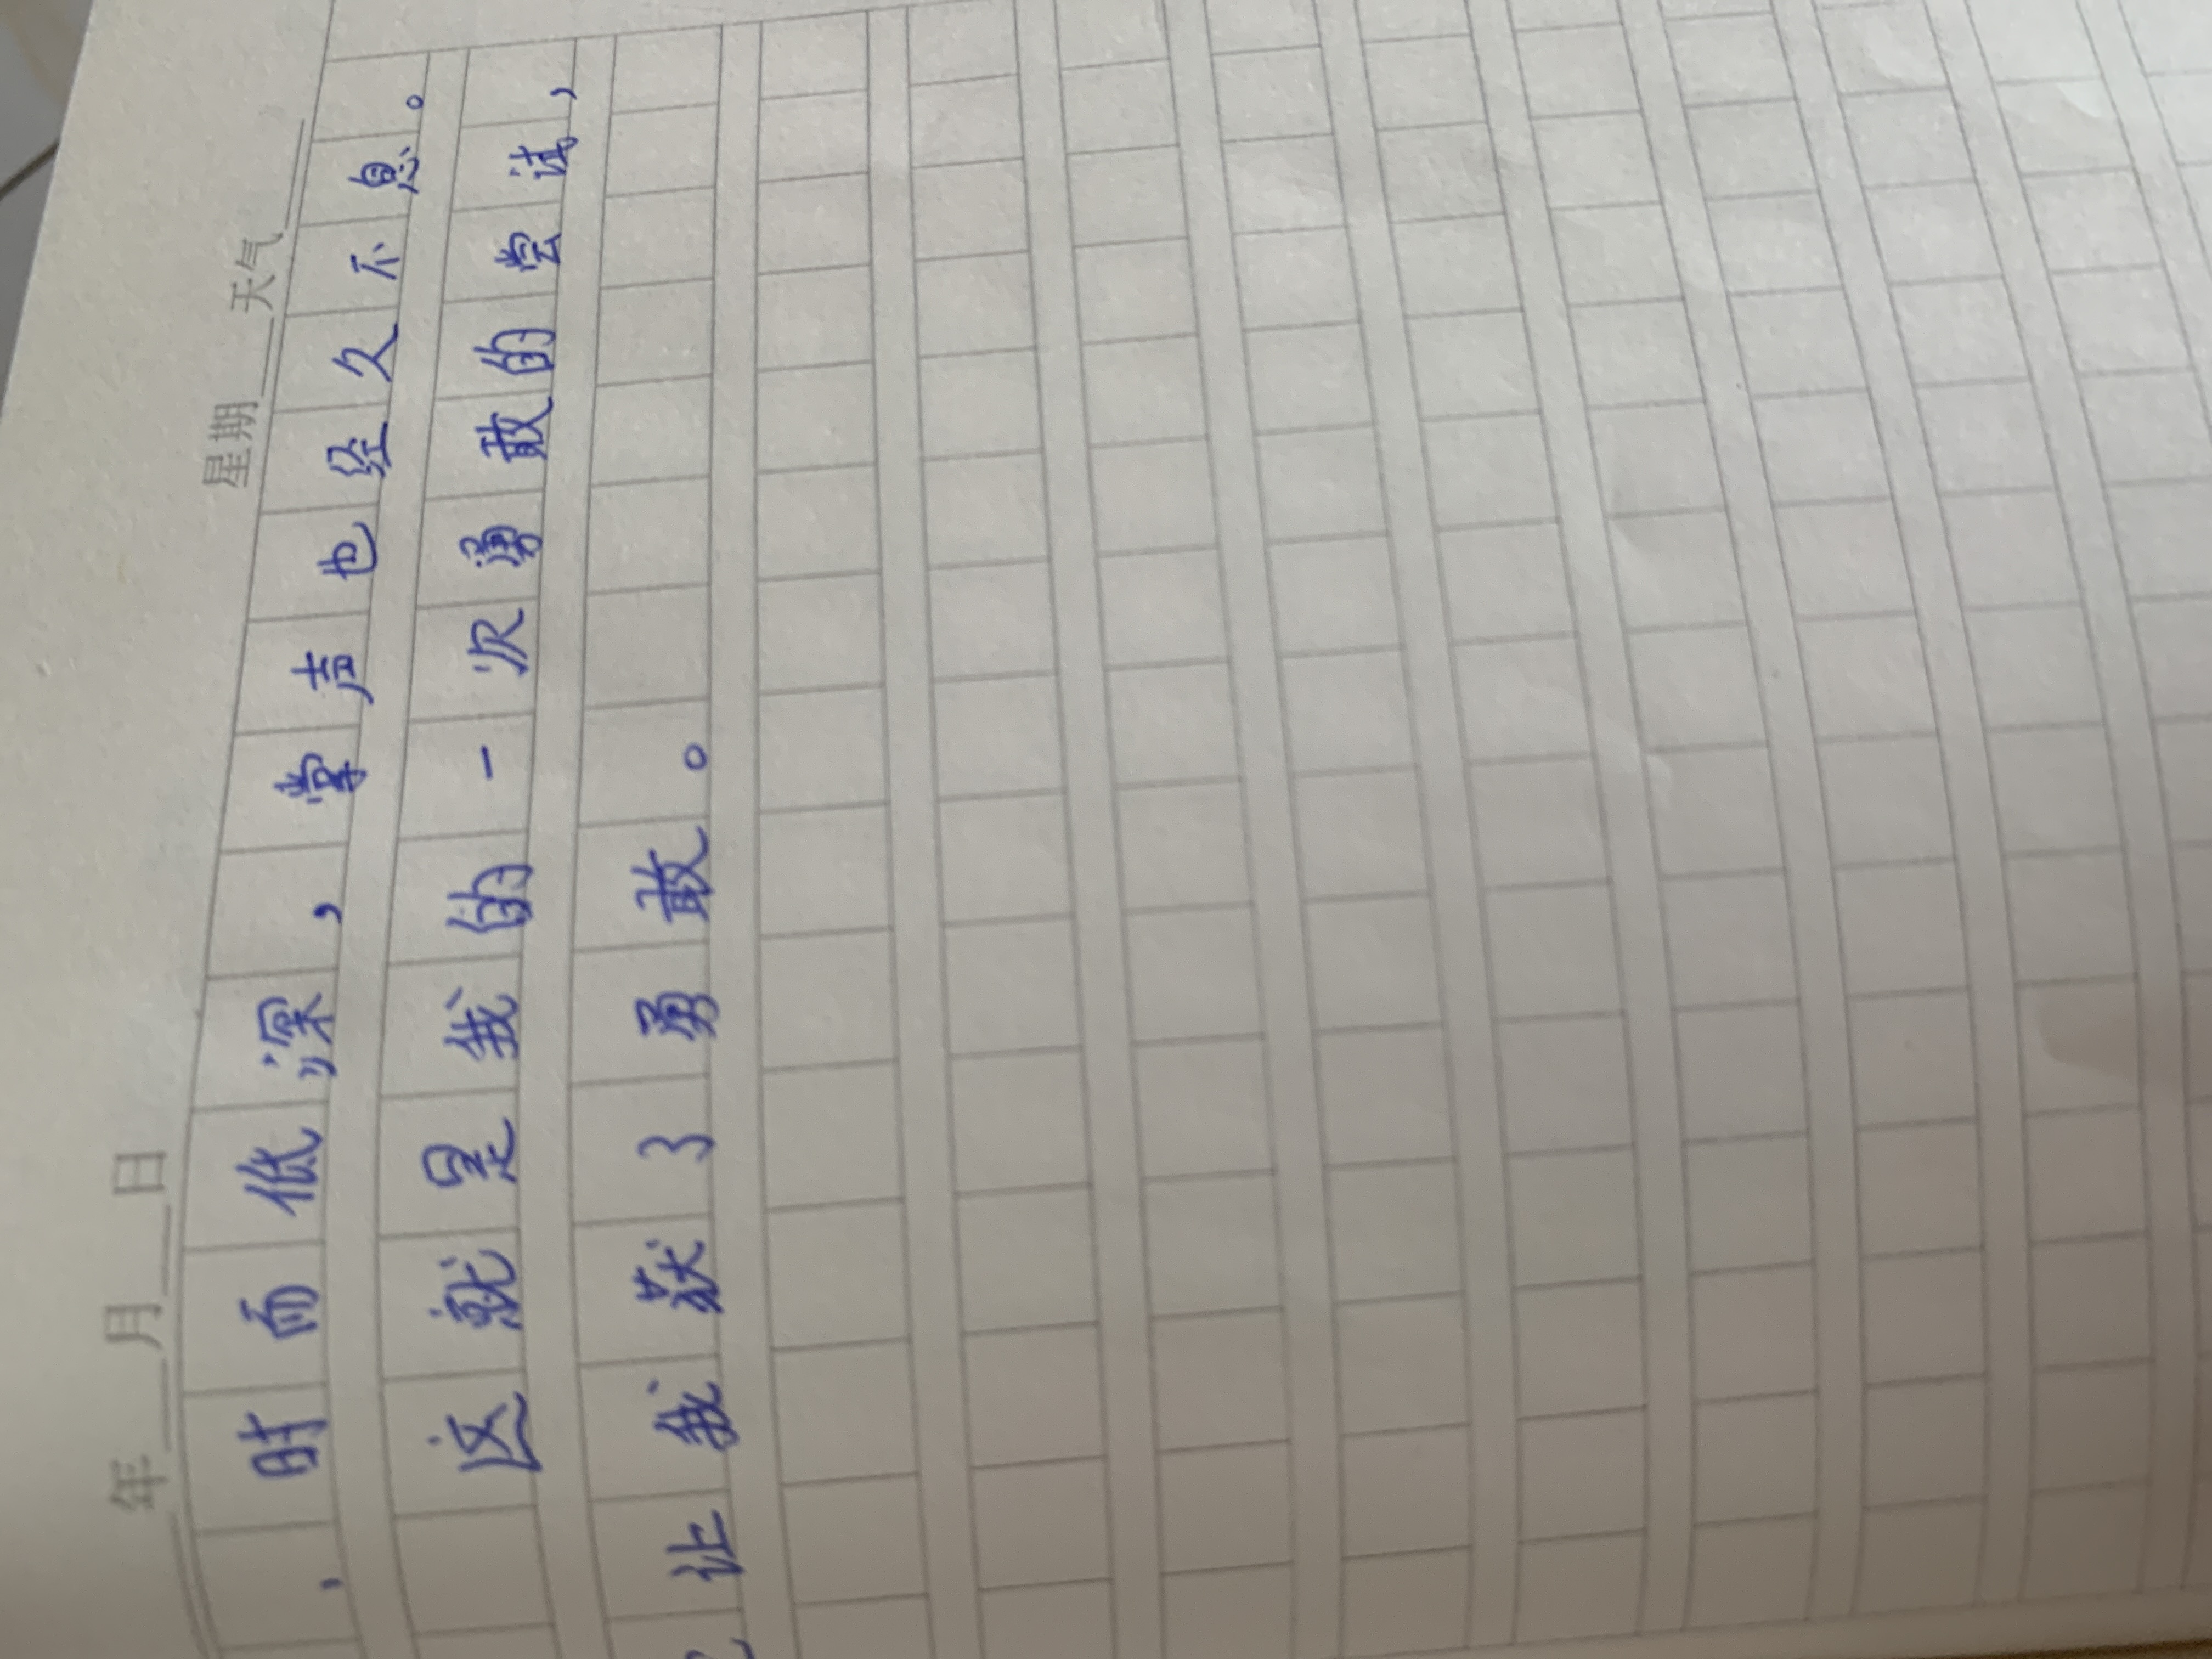 年 月 日 星期 天气
，时而低深，掌声也经久不息。
这就是我的一次勇敢的尝试，
让我获了勇敢。